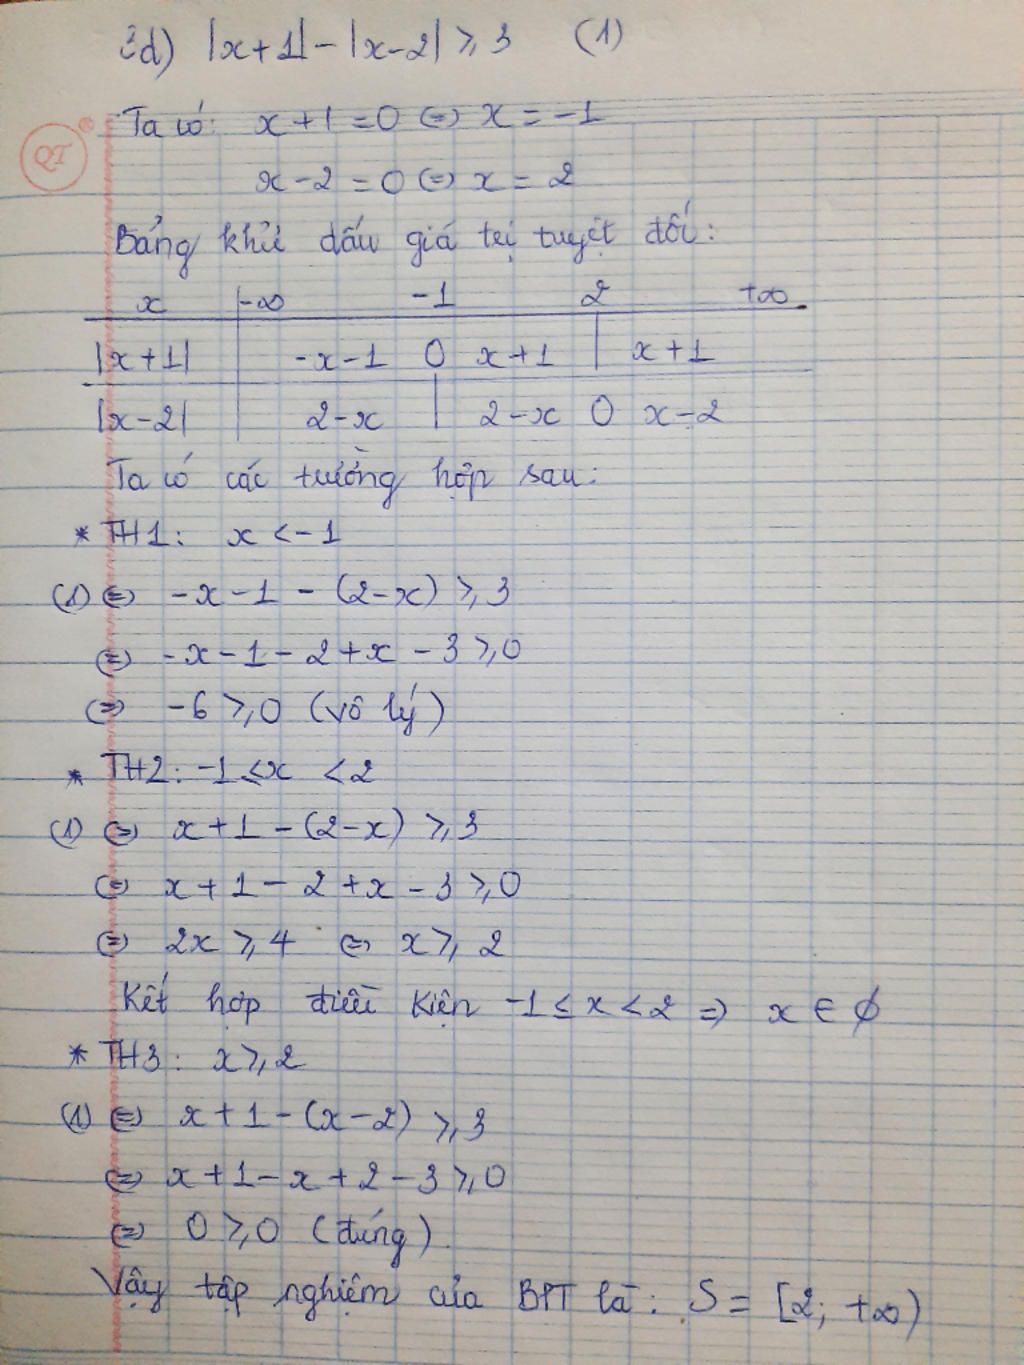 3d) |x+1| - |x-2| ≥ 3 (1)
QT
Ta có: x+1 = 0 ⇔ x = -1
x-2 = 0 ⇔ x = 2
Bảng khử dấu giá trị tuyệt đối:
x -∞ -1 2 +∞
|x+1| -x-1 0 x+1 | x+1
|x-2| 2-x | 2-x 0 x-2
Ta có các trường hợp sau:
* TH1: x < -1
(1) ⇔ -x-1 - (2-x) ≥ 3
⇔ -x-1-2+x-3 ≥ 0
⇔ -6 ≥ 0 (vô lý)
* TH2: -1 ≤ x < 2
(1) ⇔ x+1-(2-x) ≥ 3
⇔ x+1-2+x-3 ≥ 0
⇔ 2x ≥ 4 ⇔ x ≥ 2
Kết hợp điều kiện -1 ≤ x < 2 ⇒ x ∈ ∅
* TH3: x ≥ 2
(1) ⇔ x+1-(x-2) ≥ 3
⇔ x+1-x+2-3 ≥ 0
⇔ 0 ≥ 0 (đúng).
Vậy tập nghiệm của BPT là: S = [2; +∞)